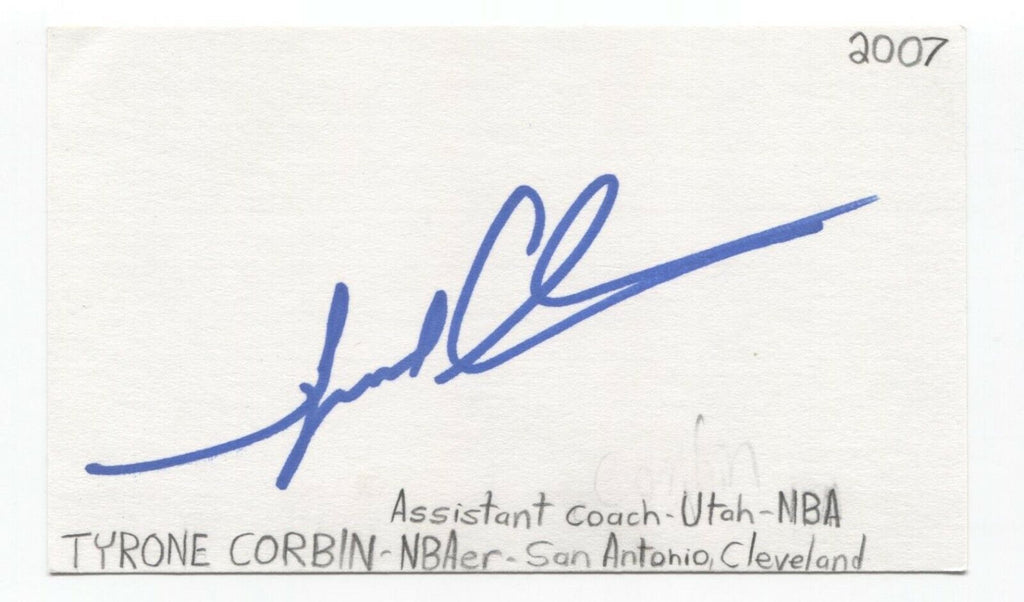 2007
Assistant coach-Utah-NBA
TYRONE CORBIN-NBAer-San Antonio, Cleveland